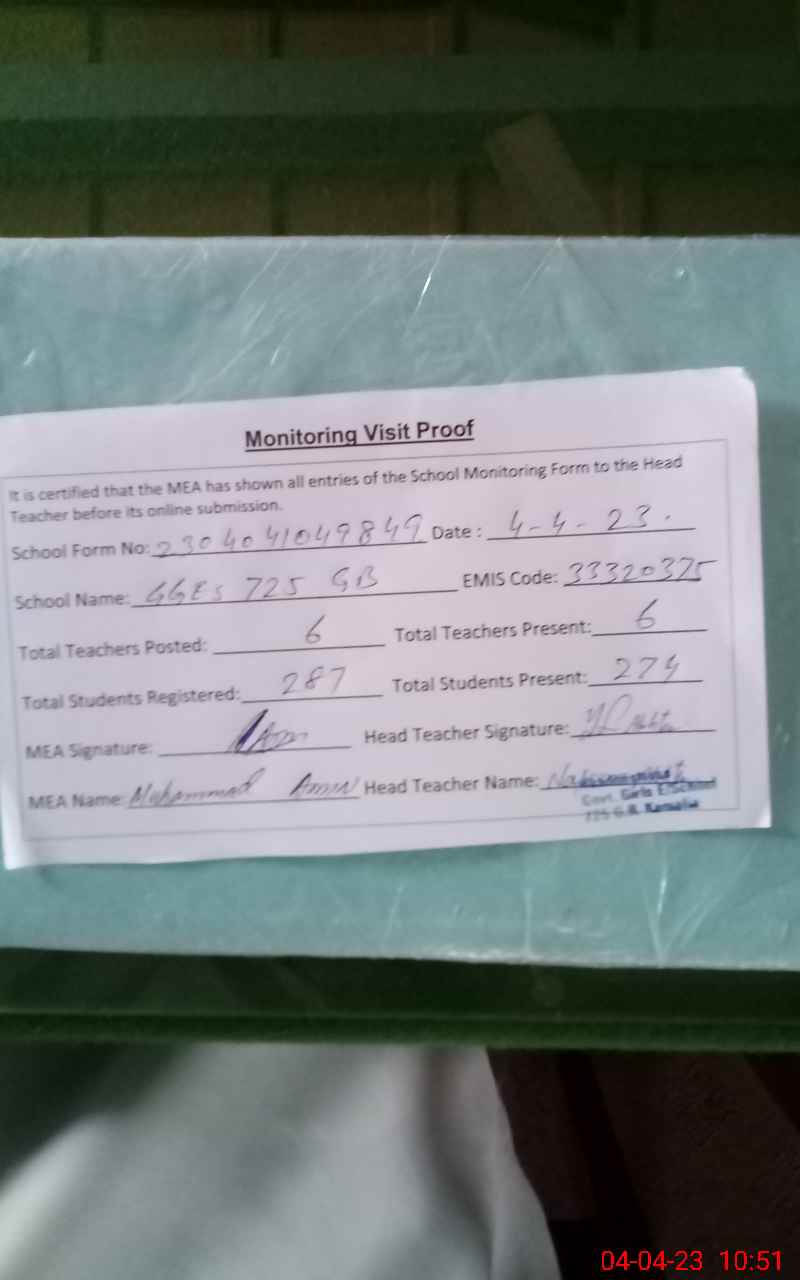 Monitoring Visit Proof
It is certified that the MEA has shown all entries of the School Monitoring Form to the Head
Teacher before its online submission.
School Form No: 2304041049849 Date : 4-4-23.
School Name: GGES 725 GB EMIS Code: 33320375
Total Teachers Posted: 6 Total Teachers Present: 6
Total Students Registered: 287 Total Students Present: 274
MEA Signature: Head Teacher Signature:
MEA Name: Mohammad Amin Head Teacher Name:
Govt. Girls E/School
725 G.B. Kamalia
04-04-23 10:51